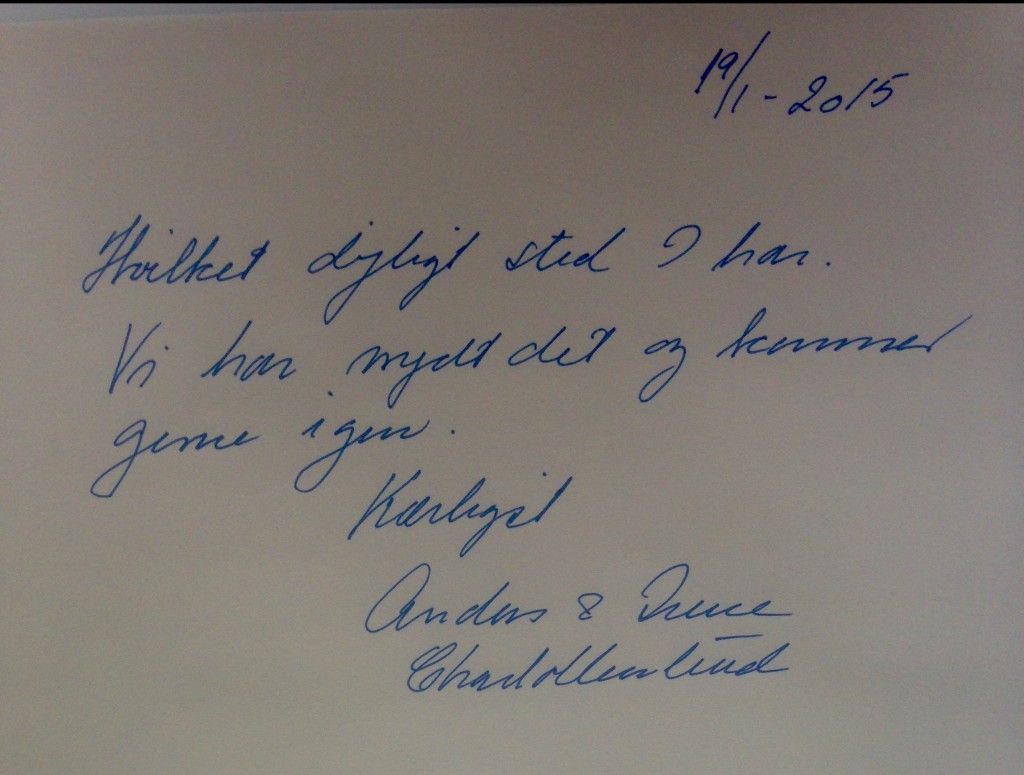 19/1-2015
Hvilket dejligt sted I har.
Vi har nydt det og kommer
gerne igen.
Kærligst
Anders & Irene
Charlottenlund